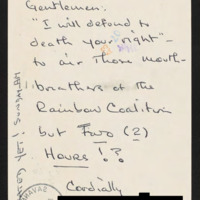 Gentlemen:
"I will defend to
death your right"—
to air those mouth-
breathers of the
Rainbow Coalition
but Two (2)
Hours!??
Cordially
YET! SUNSHADAM
SAVAN